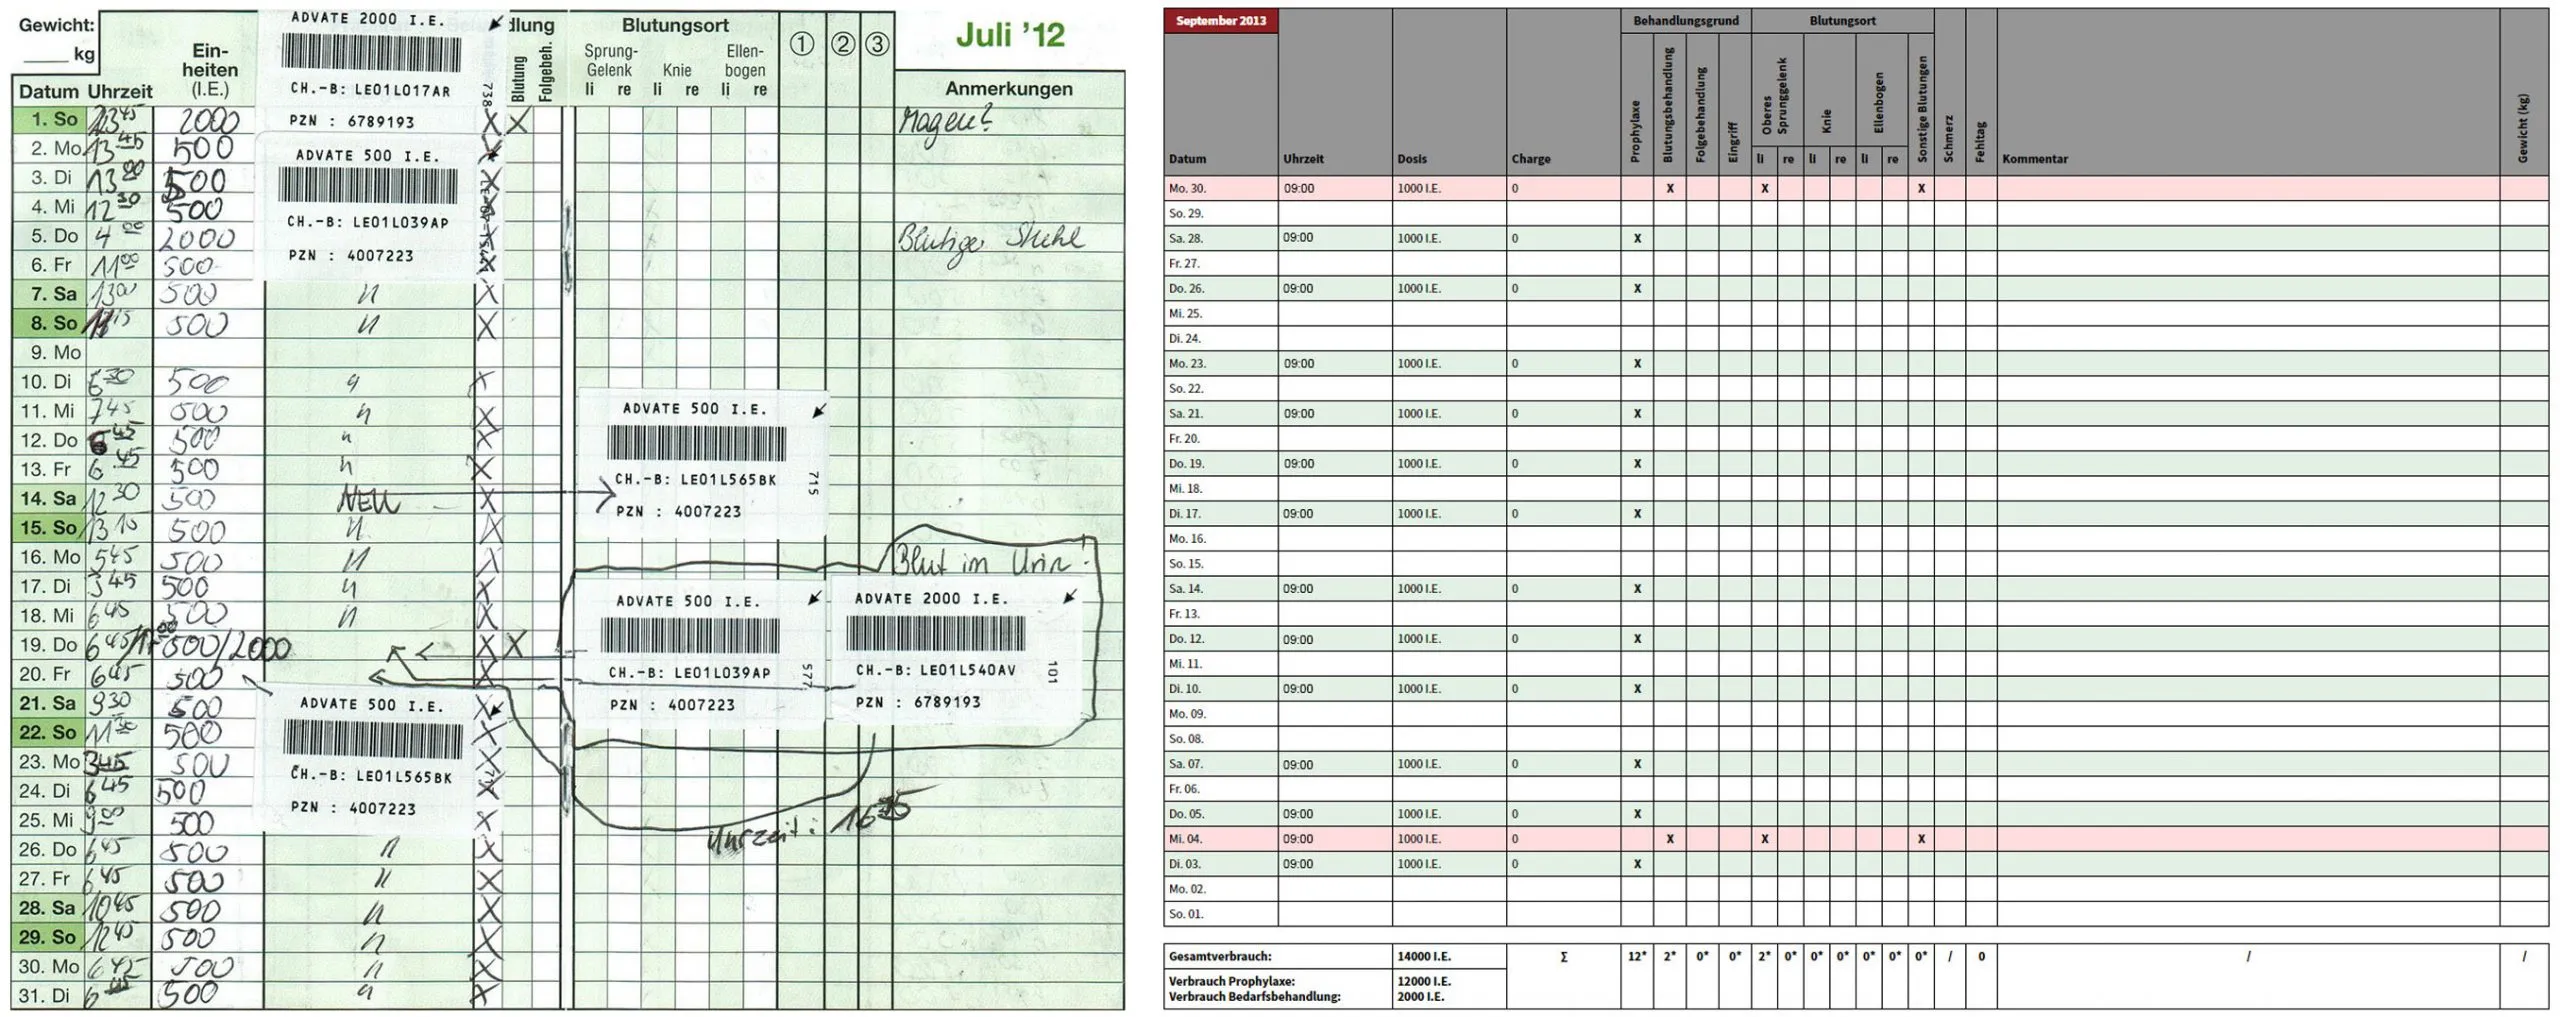 Gewicht:
____ kg
Datum Uhrzeit
Ein-
heiten
(I.E.)
dlung
Blutung
Folgebeh.
Blutungsort
Sprung-
Gelenk
Knie
Ellen-
bogen
li re li re li re
① ② ③
Juli ’12
Anmerkungen
ADVATE 2000 I.E.
CH.-B: LE01L017AR
PZN : 6789193
738
ADVATE 500 I.E.
CH.-B: LE01L039AP
PZN : 4007223
1. So 2000 X X Magen?
2. Mo 13 45 500 X
3. Di 13 00 500 X
4. Mi 12 30 500 X
5. Do 4 00 2000 X Blutiger Stuhl
6. Fr 11 00 500 X
7. Sa 13 00 500 " X
8. So 15 500 " X
9. Mo
10. Di 6 30 500 " X
11. Mi 7 45 500 " X
12. Do 6 45 500 " X
13. Fr 6 45 500 " X
14. Sa 12 30 500 NEU X
15. So 13 10 500 " X
16. Mo 5 45 500 " X Blut im Urin!
17. Di 3 45 500 " X
18. Mi 6 45 500 " X
19. Do 6 45 / 500/2000 X X
20. Fr 6 45 500 X
21. Sa 9 30 500 X
22. So 11 30 500 X
23. Mo 3 45 500 X
24. Di 6 45 500 X
25. Mi 9 00 500 X
26. Do 6 45 500 " X
27. Fr 6 45 500 " X
28. Sa 10 45 500 " X
29. So 12 45 500 " X
30. Mo 6 45 500 " X
31. Di 6 45 500 " X
ADVATE 500 I.E.
CH.-B: LE01L565BK
PZN : 4007223
715
ADVATE 500 I.E.
CH.-B: LE01L039AP
PZN : 4007223
577
ADVATE 2000 I.E.
CH.-B: LE01L540AV
PZN : 6789193
101
ADVATE 500 I.E.
CH.-B: LE01L565BK
PZN : 4007223
Uhrzeit: 16
September 2013
Behandlungsgrund Blutungsort
Datum Uhrzeit Dosis Charge Prophylaxe Blutungsbehandlung Folgebehandlung Eingriff Oberes Sprunggelenk Knie Ellenbogen Sonstige Blutungen Schmerz Fehltag Kommentar Gewicht (kg)
li re li re li re
Mo. 30. 09:00 1000 I.E. 0 X X X
So. 29.
Sa. 28. 09:00 1000 I.E. 0 X
Fr. 27.
Do. 26. 09:00 1000 I.E. 0 X
Mi. 25.
Di. 24.
Mo. 23. 09:00 1000 I.E. 0 X
So. 22.
Sa. 21. 09:00 1000 I.E. 0 X
Fr. 20.
Do. 19. 09:00 1000 I.E. 0 X
Mi. 18.
Di. 17. 09:00 1000 I.E. 0 X
Mo. 16.
So. 15.
Sa. 14. 09:00 1000 I.E. 0 X
Fr. 13.
Do. 12. 09:00 1000 I.E. 0 X
Mi. 11.
Di. 10. 09:00 1000 I.E. 0 X
Mo. 09.
So. 08.
Sa. 07. 09:00 1000 I.E. 0 X
Fr. 06.
Do. 05. 09:00 1000 I.E. 0 X
Mi. 04. 09:00 1000 I.E. 0 X X X
Di. 03. 09:00 1000 I.E. 0 X
Mo. 02.
So. 01.
Gesamtverbrauch: 14000 I.E. Σ 12* 2* 0* 0* 2* 0* 0* 0* 0* 0* 0* / 0 / /
Verbrauch Prophylaxe: 12000 I.E.
Verbrauch Bedarfsbehandlung: 2000 I.E.